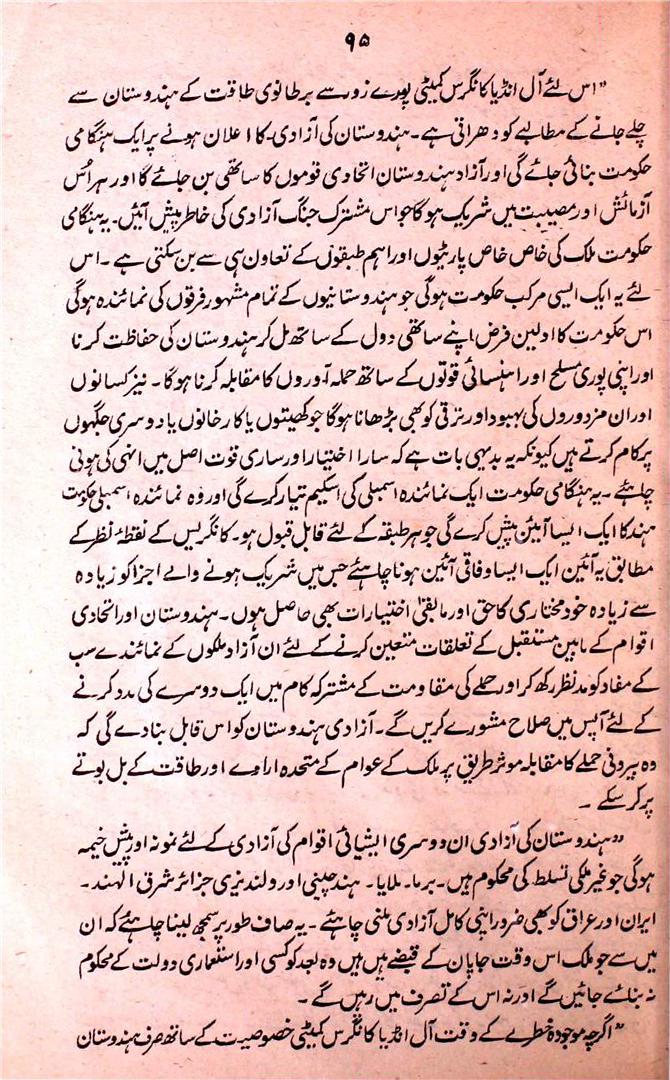 ۹۵
”اس لئے آل انڈیا کانگرس کمیٹی پورے زور سے برطانوی طاقت کے ہندوستان سے
چلے جانے کے مطالبے کو دھراتی ہے۔ ہندوستان کی آزادی کا اعلان ہونے پر ایک ہنگامی
حکومت بنائی جائے گی اور آزاد ہندوستان اتحادی قوموں کا ساتھی بن جائے گا اور ہر اُس
آزمائش اور مصیبت میں شریک ہوگا جو اس مشترک جنگ آزادی کی خاطر پیش آئیں۔ یہ ہنگامی
حکومت ملک کی خاص خاص پارٹیوں اور اہم طبقوں کے تعاون ہی سے بن سکتی ہے ۔ اس
لئے یہ ایک ایسی مرکب حکومت ہوگی جو ہندوستانیوں کے تمام مشہور فرقوں کی نمائندہ ہوگی
اس حکومت کا اولین فرض اپنے ساتھی دول کے ساتھ مل کر ہندوستان کی حفاظت کرنا
اور اپنی پوری مسلح اور اہنسائی قوتوں کے ساتھ حملہ آوروں کا مقابلہ کرنا ہوگا۔ نیز کسانوں
اور ان مزدوروں کی بہبود اور ترقی کو بھی بڑھانا ہوگا جو کھیتوں یا کارخانوں یا دوسری جگہوں
پر کام کرتے ہیں کیونکہ یہ بدیہی بات ہے کہ سارا اختیار اور ساری قوت اصل میں انہی کی ہونی
چاہئے ۔ یہ ہنگامی حکومت ایک نمائندہ اسمبلی کی اسکیم تیار کرے گی اور وہ نمائندہ اسمبلی حکومت
ہند کا ایک ایسا آئین پیش کرے گی جو ہر طبقہ کے لئے قابل قبول ہو۔ کانگریس کے نقطۂ نظر کے
مطابق یہ آئین ایک ایسا وفاقی آئین ہونا چاہئے جس میں شریک ہونے والے اجزا کو زیادہ
سے زیادہ خود مختاری کا حق اور مابقیٰ اختیارات بھی حاصل ہوں۔ ہندوستان اور اتحادی
اقوام کے مابین مستقبل کے تعلقات متعین کرنے کے لئے ان آزاد ملکوں کے نمائندے سب
کے مفاد کو مدنظر رکھ کر اور حملے کی مقاومت کے مشترکہ کام میں ایک دوسرے کی مدد کرنے
کے لئے آپس میں صلاح مشورے کریں گے۔ آزادی ہندوستان کو اس قابل بنا دے گی کہ
وہ بیرونی حملے کا مقابلہ موثر طریق پر ملک کے عوام کے متحدہ ارادے اور طاقت کے بل بوتے
پر کر سکے ۔
”ہندوستان کی آزادی ان دوسری ایشیائی اقوام کی آزادی کے لئے نمونہ اور پیش خیمہ
ہوگی جو غیر ملکی تسلط کی محکوم ہیں۔ برما۔ ملایا۔ ہند چینی اور ولندیزی جزائر شرق الہند۔
ایران اور عراق کو بھی ضرور اپنی کامل آزادی ملنی چاہئے ۔ یہ صاف طور پر سمجھ لینا چاہئے کہ ان
میں سے جو ملک اس وقت جاپان کے قبضے میں ہیں وہ بعد کو کسی اور استعماری دولت کے محکوم
نہ بنائے جائیں گے اور نہ اس کے تصرف میں رہیں گے ۔
”اگرچہ موجودہ خطرے کے وقت آل انڈیا کانگرس کمیٹی خصوصیت کے ساتھ صرف ہندوستان